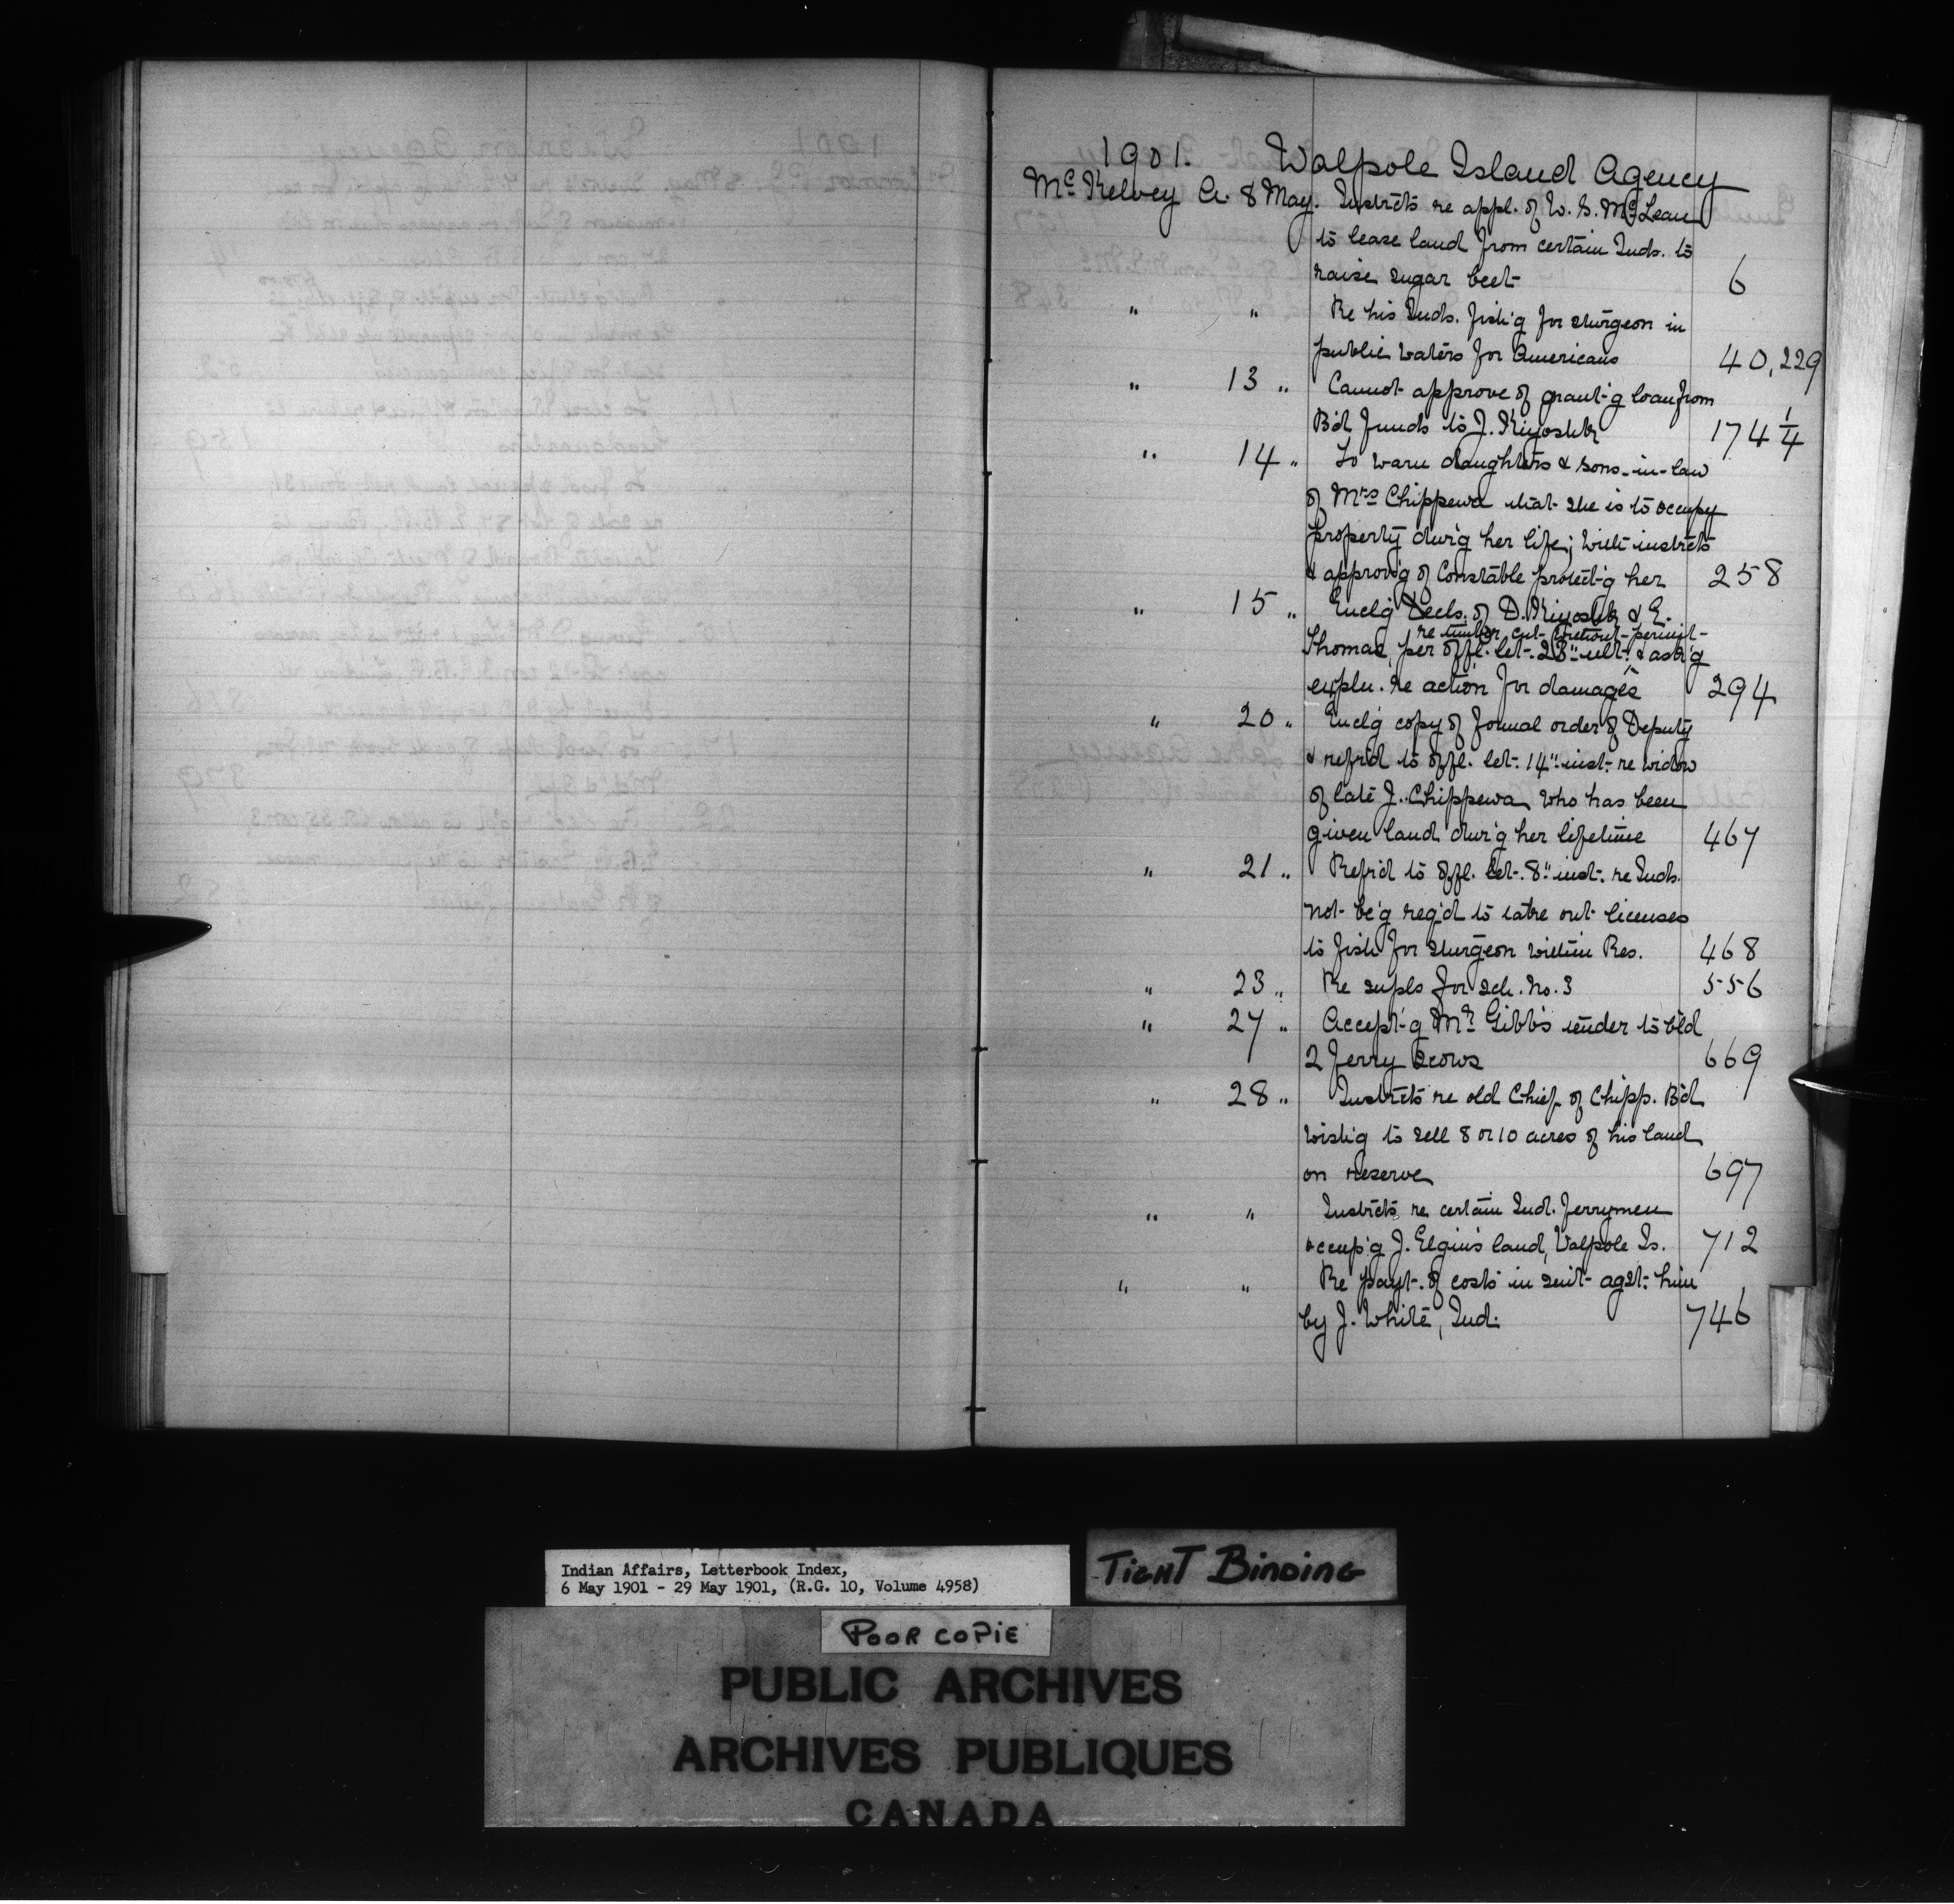 1901. Walpole Island Agency
McKelvey A. 8 May. Instrcts re appl. of W. S. McLean
to lease land from certain Inds. to
raise sugar beet 6
" " Re his Inds. fish'g for sturgeon in
public waters for Americans 40, 229
" 13 " Cannot approve of grant'g loan from
B'd funds to J. Kiyoshk 174 1/4
" 14 " To warn daughters & sons-in-law
of Mrs Chippewa that she is to occupy
property dur'g her life; with instrcts
& approv'g of Constable protect'g her 258
" 15 " Encl'g decls. of D. Kiyoshk & E.
re timber cut without permit
Thomas, per offl. let. 23" ult. & ask'g
expln. re action for damages 294
" 20 " Encl'g copy of formal order of Deputy
& ref'r'd to offl. let. 14" inst. re widow
of late J. Chippewa who has been
given land dur'g her lifetime 467
" 21 " Ref'r'd to offl. let. 8" inst. re Inds.
not be'g req'd to take out licenses
to fish for sturgeon within Res. 468
" 23 " Re supls for sch. No. 3 556
" 27 " Accept'g Mr. Gibb's tender to b'ld
2 ferry scows 669
" 28 " Instrcts re old Chief of Chipp. B'd
wish'g to sell 8 or 10 acres of his land
on reserve 697
" " Instrcts re certain Ind. ferrymen
occup'g J. Elgin's land, Walpole Is. 712
" " Re payt. of costs in suit agst. him
by J. White, Ind. 746
Indian Affairs, Letterbook Index,
6 May 1901 - 29 May 1901, (R.G. 10, Volume 4958)
TIGHT BINDING
POOR COPIE
PUBLIC ARCHIVES
ARCHIVES PUBLIQUES
CANADA